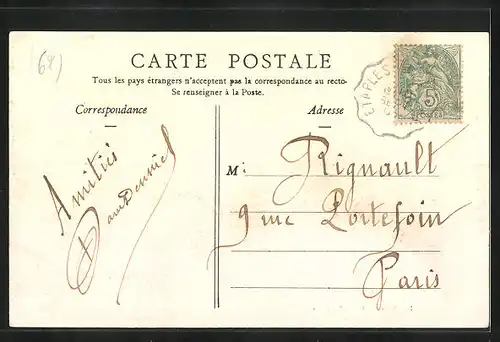 (62)
CARTE POSTALE
Tous les pays étrangers n'acceptent pas la correspondance au recto-
Se renseigner à la Poste.
Correspondance
Adresse
ETAPLES
5
Amitiés
M: Rignault
9 rue Portefoin
Paris